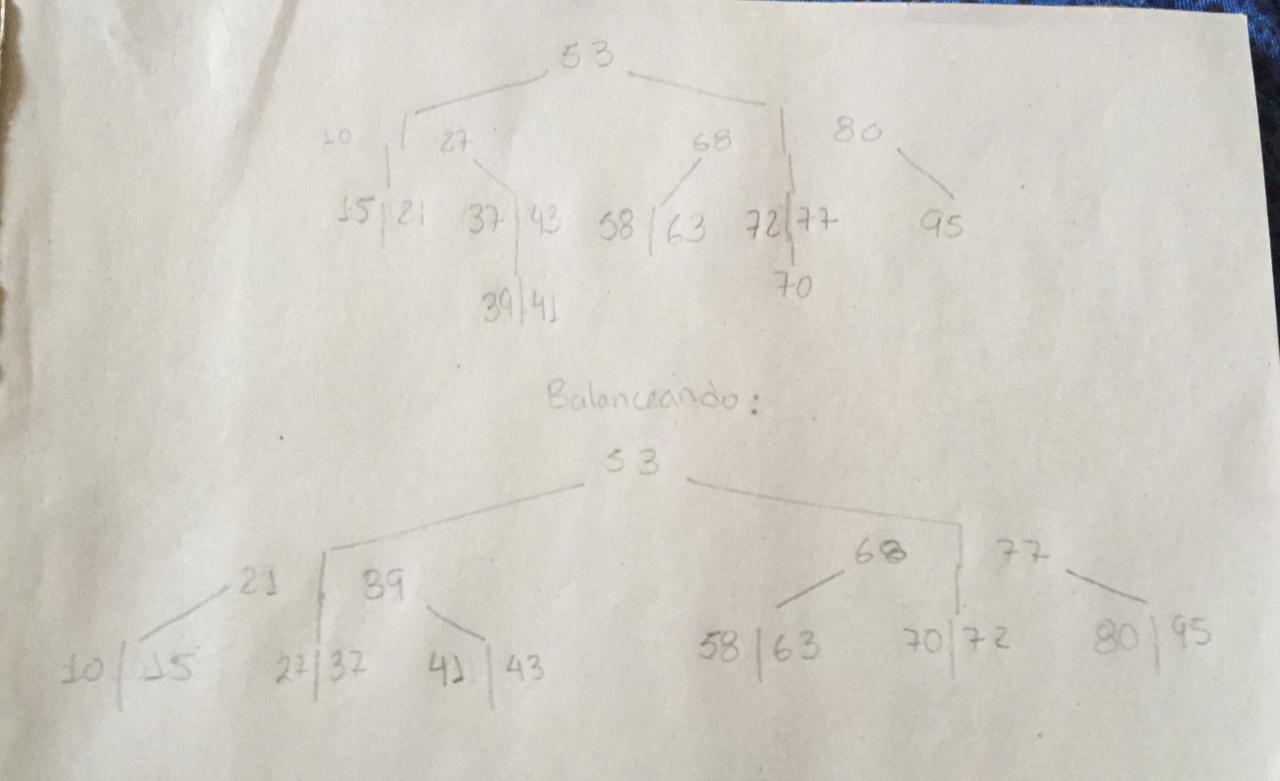 53
10 | 27 68 | 80
15 | 21 37 | 43 58 | 63 72 | 77 95
39 | 41 70
Balanceando:
53
21 | 39 68 | 77
10 | 15 27 | 37 41 | 43 58 | 63 70 | 72 80 | 95